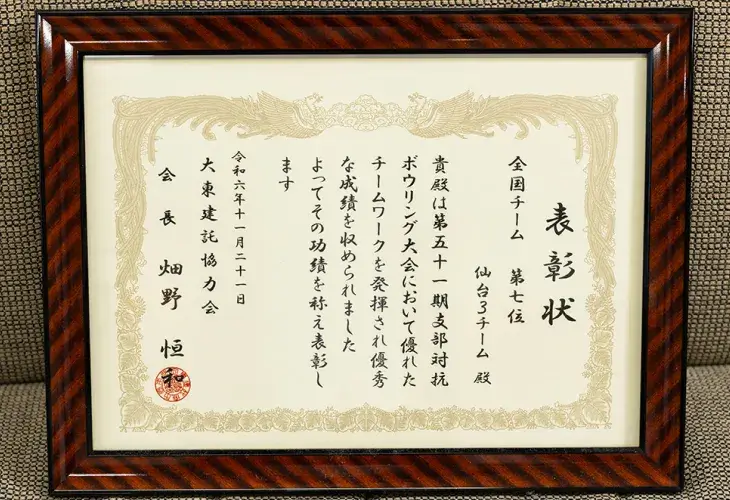 表彰状
全国チーム 第七位
仙台3チーム 殿
貴殿は第五十一期支部対抗
ボウリング大会において優れた
チームワークを発揮され優秀
な成績を収められました
よってその功績を称え表彰し
ます
令和六年十一月二十一日
大東建託協力会
会長 畑野 恒和